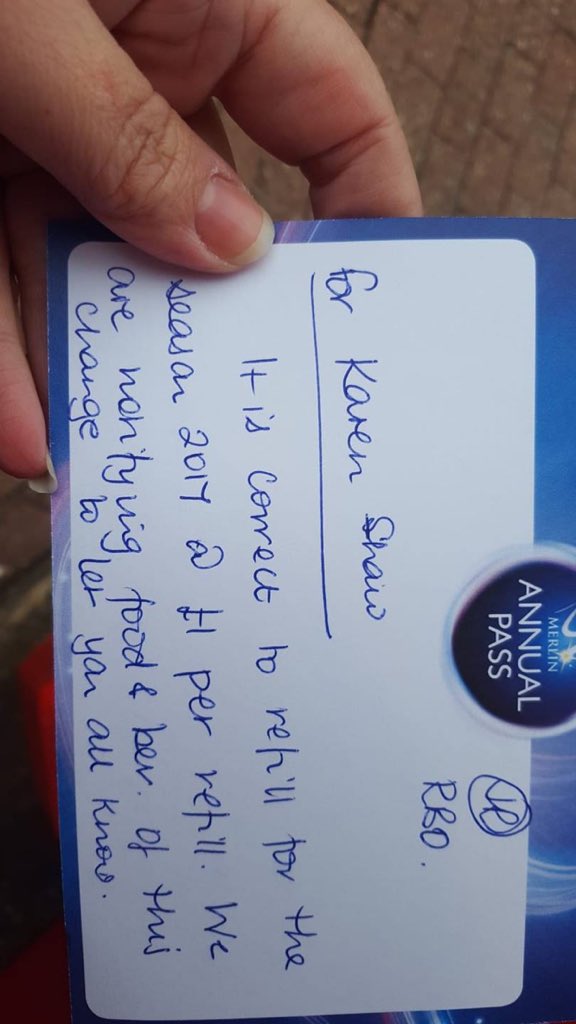 MERLIN
ANNUAL
PASS
RBO.
for Karen Shaw
It is correct to refill for the
season 2017 @ £1 per refill. We
are notifying food & bev. of this
change to let you all know.